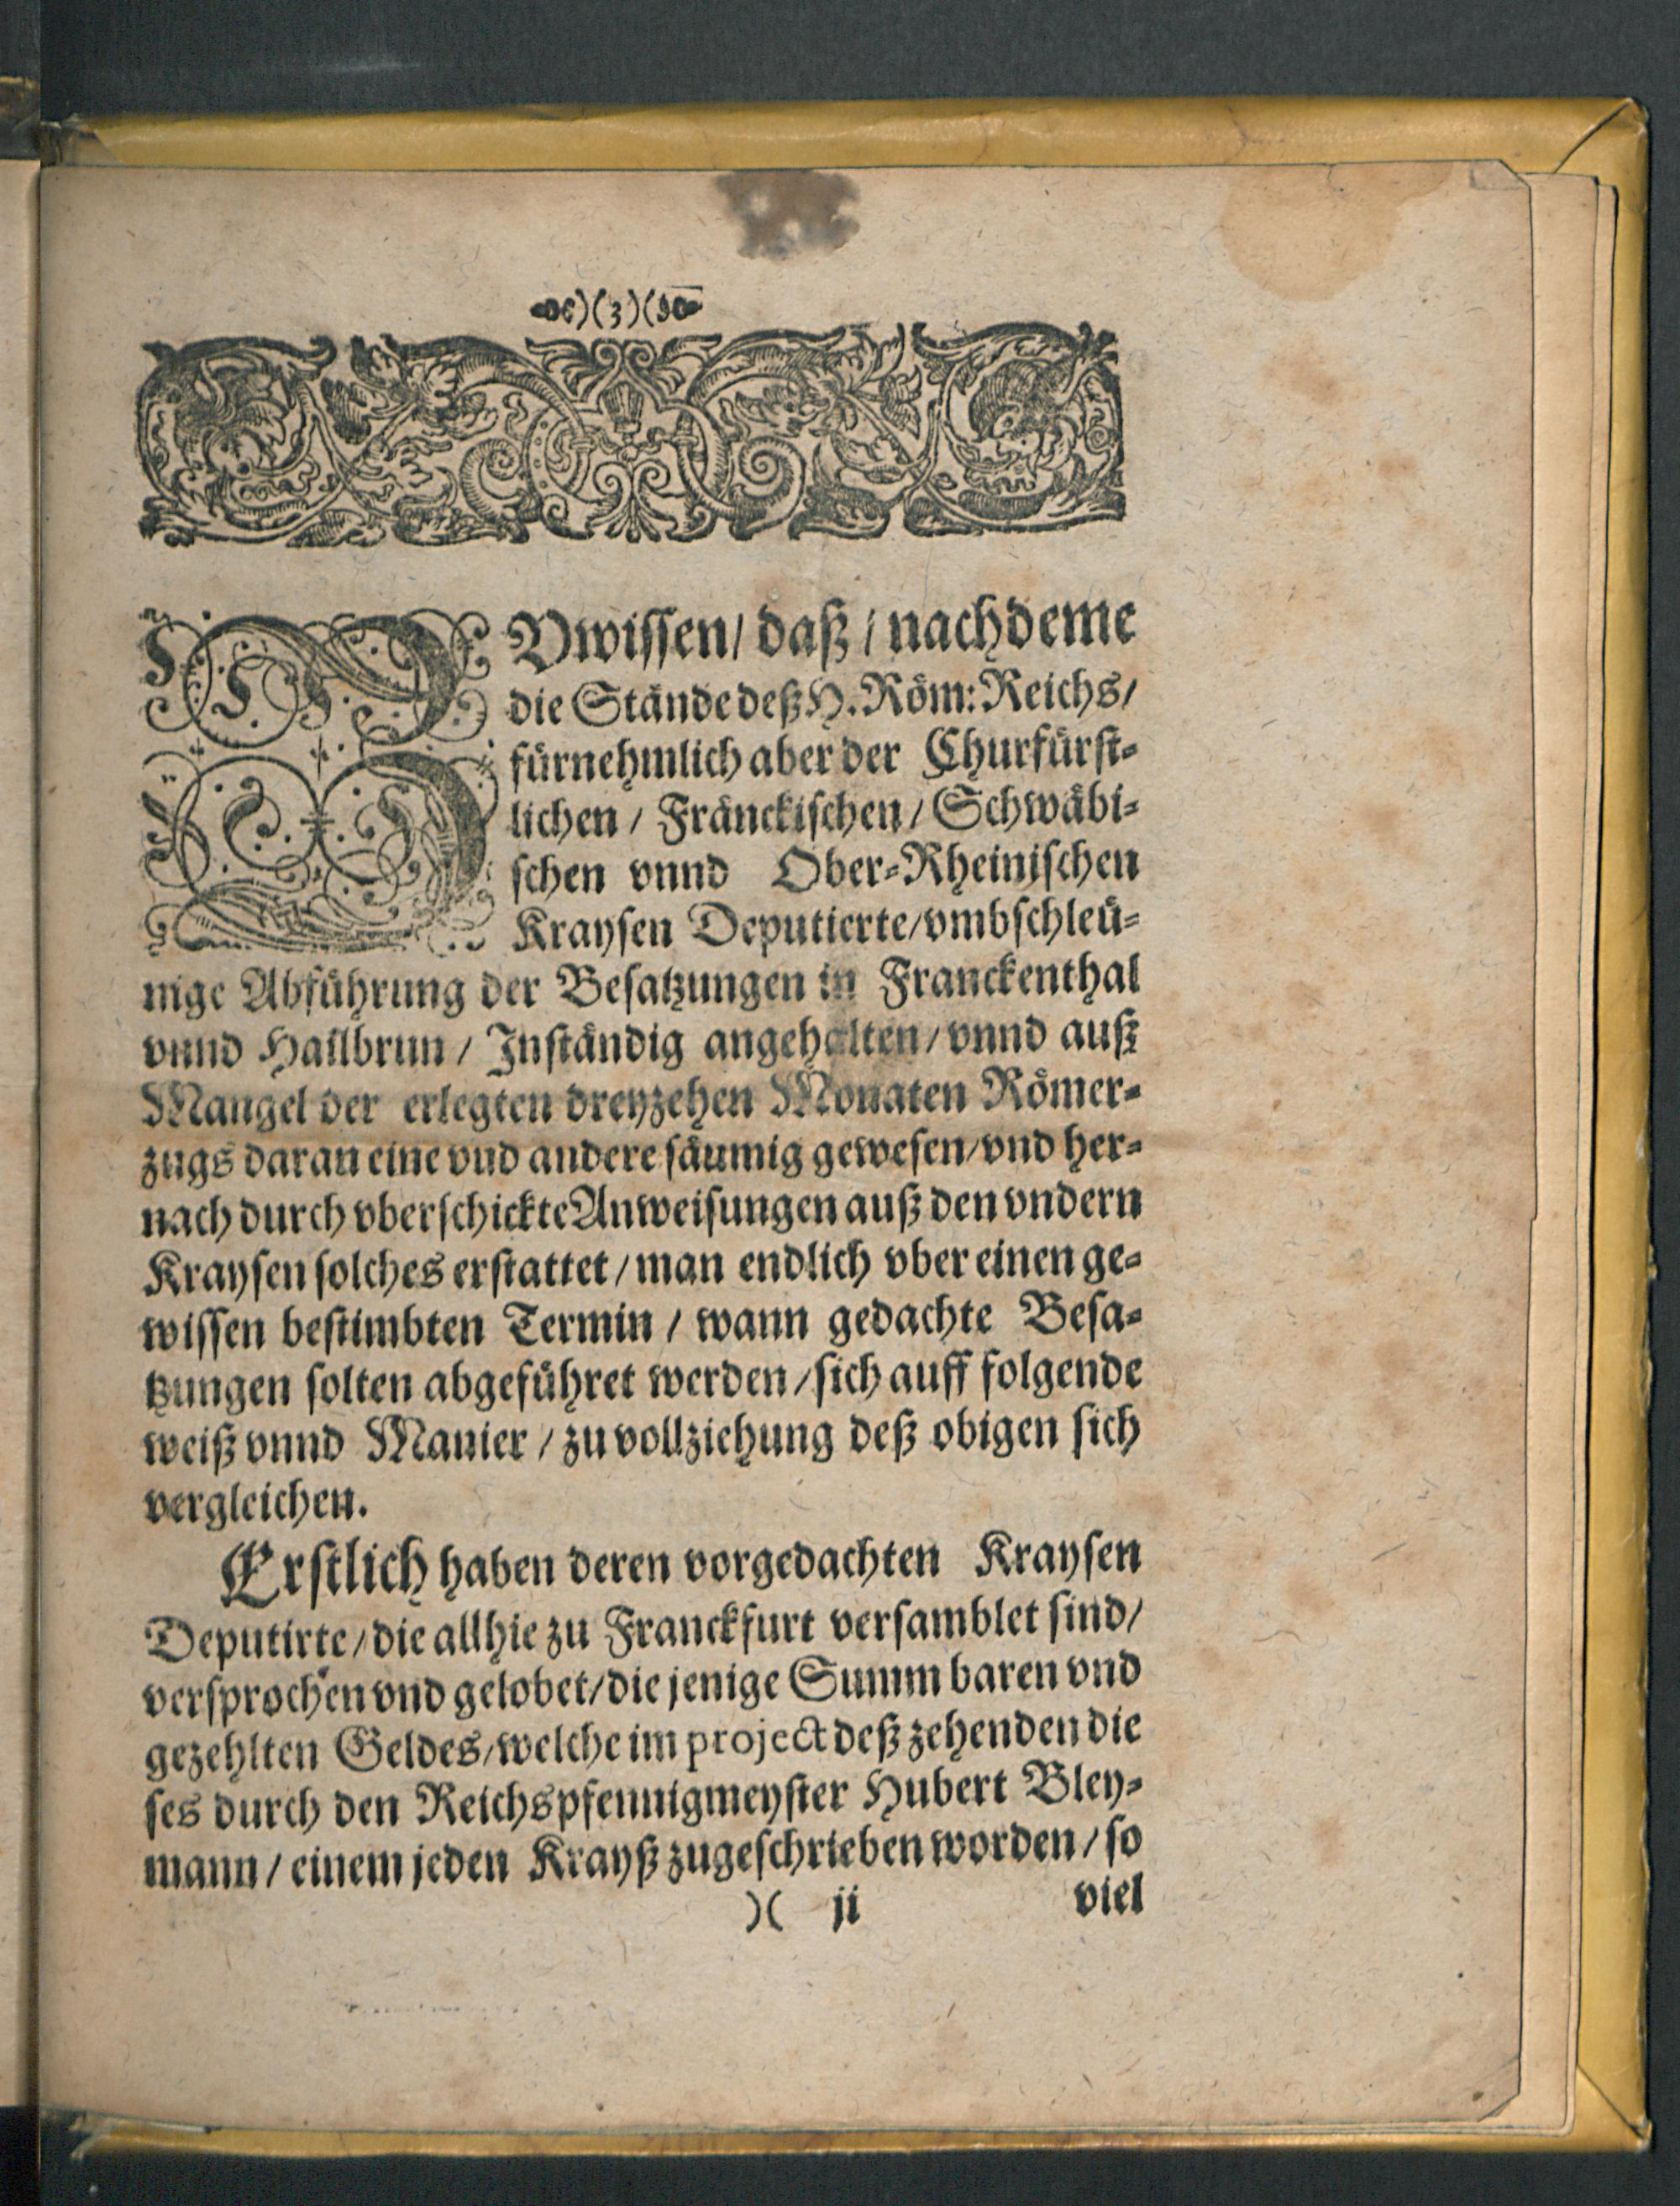 )(3)(
ZVwissen/ daß/ nachdeme
die Stände deß H. Röm: Reichs/
fürnehmlich aber der Churfürst-
lichen / Fränckischen / Schwäbi-
schen vnnd Ober-Rheinischen
Kraysen Deputierte/vmbschleü-
nige Abführung der Besatzungen in Franckenthal
vnnd Hailbrun / Inständig angehalten/vnnd auß
Mangel der erlegten dreyzehen Monaten Römer-
zugs daran eine vnd andere säumig gewesen/vnd her-
nach durch vberschickte Anweisungen auß den vndern
Kraysen solches erstattet / man endlich vber einen ge-
wissen bestimbten Termin / wann gedachte Besa-
tzungen solten abgeführet werden/sich auff folgende
weiß vnnd Manier / zu vollziehung deß obigen sich
vergleichen.
Erstlich haben deren vorgedachten Kraysen
Deputirte/die allhie zu Franckfurt versamblet sind/
versprochen vnd gelobet/die jenige Summ baren vnd
gezehlten Geldes/welche im project deß zehenden die
ses durch den Reichspfennigmeyster Hubert Bley-
mann / einem jeden Krayß zugeschrieben worden / so
)( ij viel